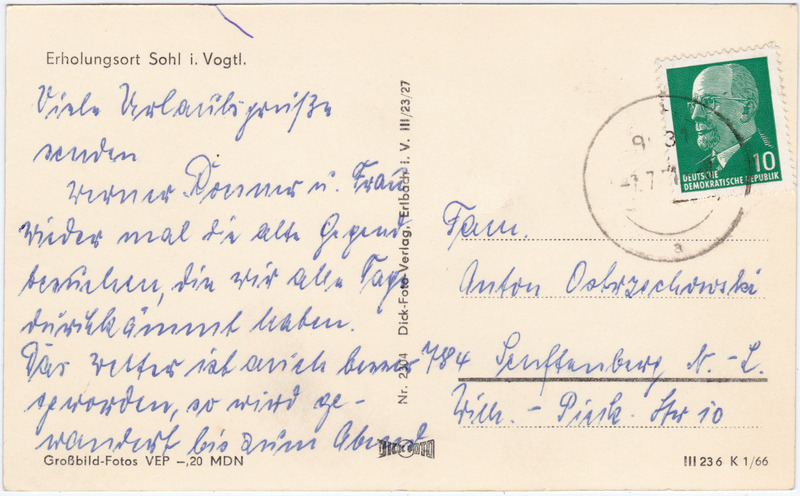 Erholungsort Sohl i. Vogtl.
Viele Urlaubsgrüße
senden
Werner Donner u. Frau
Wieder mal die alte Gegend
besuchen, die wir alle Tage
durchkämmt haben.
Das Wetter ist auch besser
geworden, so wird ge-
wandert bis zum Abend
Großbild-Fotos VEP -,20 MDN
Nr. 2304 Dick-Foto-Verlag, Erlbach i. V. III/23/27
DICK FOTO
DEUTSCHE
DEMOKRATISCHE REPUBLIK
10
a
Fam.
Anton Ostrzechowski
784 Senftenberg N.-L.
Wilh.-Pieck-Str 10
III 23 6 K 1/66